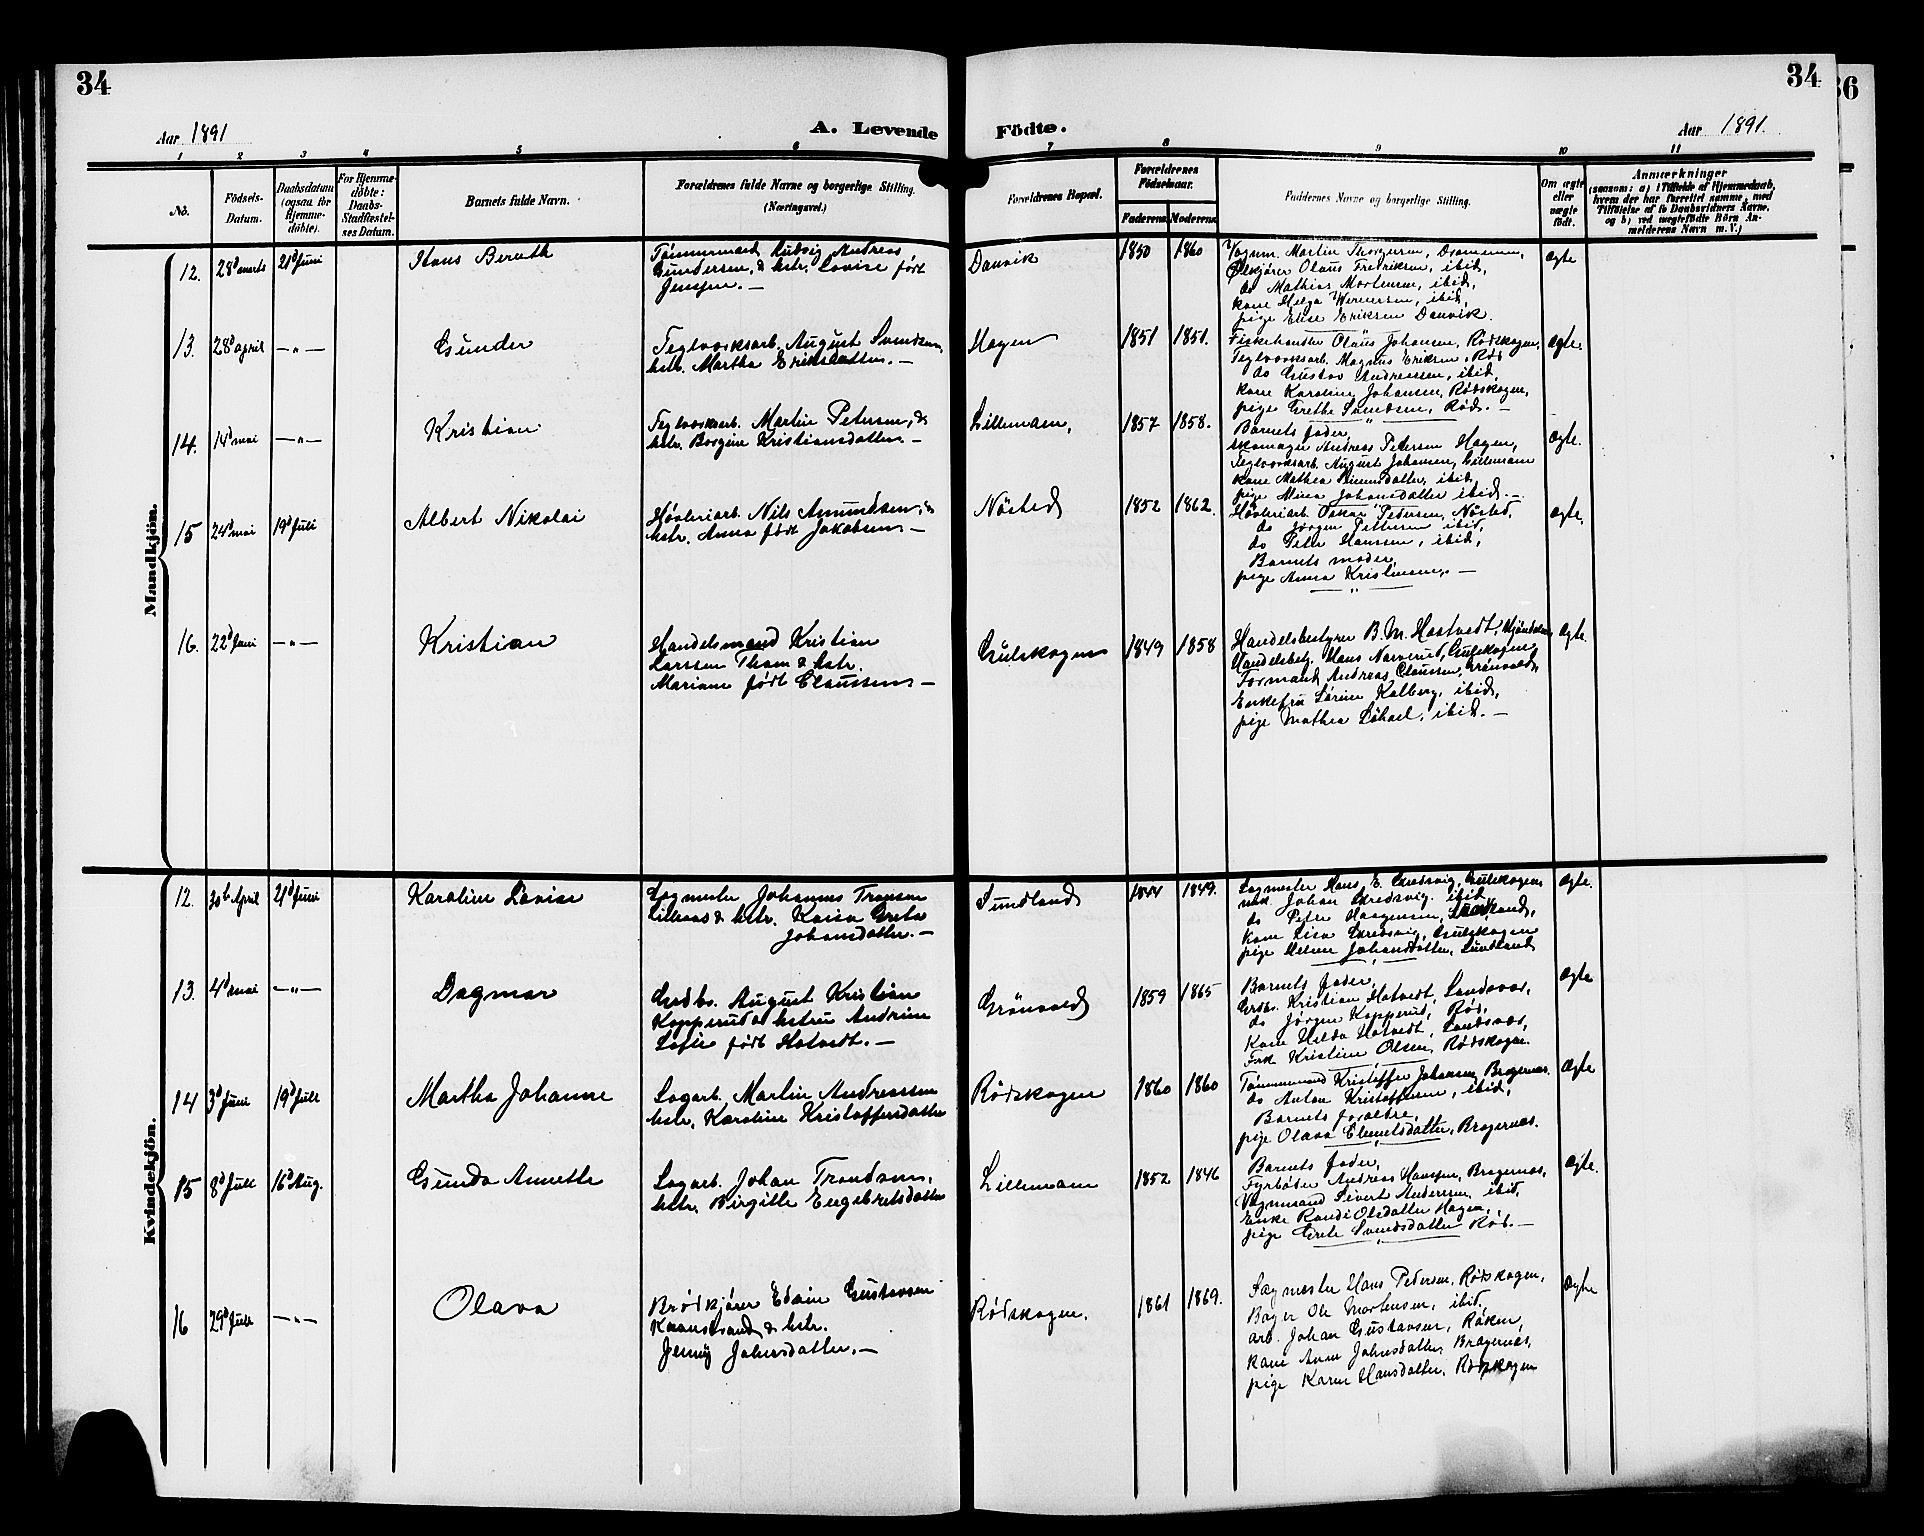 34
34
36
Aar 1891
A. Levende
Födte.
Aar 1891.
1 2 3 4 5 6 7 8 9 10 11
No.
Födsels-
Datum.
Daabsdatum
(ogsaa for
Hjemme-
döbte).
For Hjemme-
döbte:
Daabs-
Stadfæstel-
ses Datum.
Barnets fulde Navn.
Forældrenes fulde Navne og borgerlige Stilling.
(Næringsvei.)
Forældrenes Bopæl.
Forældrenes
Födselsaar.
Faderens. Moderens.
Faddernes Navne og borgerlige Stilling.
Om ægte
eller
uægte
födt.
Anmærkninger
(saasom: a) i Tilfælde af Hjemmedaab,
hvem der har forrettet samme, med
Tilföielse af to Daabsvidners Navne,
og b) ved uægtefödte Börn An-
melderens Navn m. V.)
Mandkjön.
12. 28d marts 21d Juni
Hans Bernth
Tømmermand Ludvig Andreas
Gundersen, & hstr. Lovise født
Jensen. —
Danvik
1850 1860
Vognm. Martin Thorgersen, Drammen,
Ølkjører Olaus Fredriksen, ibid,
do Mathias Mortensen, ibid,
kone Helga Wernersen, ibid,
pige Elise Eriksen Danvik.
Ægte
13. 28d april —"—
Gunder
Teglværksarb. August Svendsen,
hstr. Martha Eriksdatter. —
Hagen
1851 1851.
Fiskehandler Olaus Johansen, Rødskogen,
Teglværksarb. Magnus Eriksen, Rød
do Gustav Andreasen, ibid,
kone Karoline Johansen, Rødskogen,
pige Grethe Svendsen, Rød. —
Ægte.
14. 14d mai —"—
Kristian
Teglværksarb. Martin Petersen, &
hstr. Borgine Kristiansdatter. —
Lillemoen,
1857 1858.
Barnets fader,
Skomager Andreas Petersen Hagen,
Teglværksarb. August Johansen, Lillemoen
kone Mathea Simensdatter, ibid,
pige Mina Johansdatter ibid. —
Ægte.
15 24d mai 19d Juli
Albert Nikolai
Høvleriarb. Nils Amundsen, &
hstr. Anna født Jakobsen —
Nøsted
1852 1862.
Høvleriarb. Oskar Pedersen, Nøsted,
do Jørgen Pettersen ibid,
do Peter Hanssen, ibid,
Barnets moder,
pige Anna Kristiansen, —
Ægte.
16. 22d Juni —"—
Kristian
Handelsmand Kristian
Larssen Thom & hstr.
Mariane født Claussen, —
Gulskogen
1849 1858
Handelsbestyrer B. M. Hostvedt, Mjøndalen,
Handelsbetj. Hans Narverud, Gulskogen,
Formand Andreas Claussen, Grønvold,
Enkefru Sørine Kalberg, ibid,
pige Mathea ibid. —
Ægte.
Kvindekjön.
12. 30te April 21d Juni
Karoline Lovise
Sagmester Johannes Tronsen
Lillaas & hstr. Kaisa Greta
Johansdatter. —
Sundland
1844 1849.
Sagmester Hans E. Skredsvig, Gulskogen
Johan Skredsvig, ibid,
do Peter Haagensen, Sundland,
kone Lisa Skredsvig, Gulskogen
pige Helene Johansdatter, Sundland
Ægte.
13. 4d mai —"—
Dagmar
Grdbr. August Kristian
Kopperud & hstru Andrine
Sofie født Hotvedt. —
Grønvold
1859 1865
Barnets fader,
Grdbr. Kristian Hotvedt, Sandsvær,
do Jørgen Kopperud, Rød,
Kone Hilda Hotvedt, Sandsvær,
Frk Kristine Olsen, Rødskogen
Ægte
14 3d Juni 19d Juli
Martha Johanne
Sagarb. Martin Andreassen
hstr. Karoline Kristoffersdatter
Rødskogen
1860 1860
Tømmermand Kristoffer Johansen, Bragernæs.
do Anton Kristoffersen, ibid,
Barnets forældre,
pige Olava Ebenetsdatter, Bragernæs.
Ægte
15 8d Juli 16d Aug.
Gunda Annette
Sagarb. Johan Trondsen,
hstr. Birgitte Engebretsdatter
Lillemoen
1852 1846
Barnets fader,
Fyrbøder Andreas Hansen, Bragernæs,
Vognmand Sivert Andersen, ibid,
Enke Randi Olsdatter Hagen,
pige Grete Svendsdatter Rød. —
Ægte.
16 29d Juli —"—
Olava
Brødkjører Edvin Gustavsen
Kaanestrand & hstr.
Jenny Johnsdatter. —
Rødskogen.
1861 1869.
Sagmester Hans Pedersen, Rødskogen,
Bager Ole Mortensen, ibid.
arb. Johan Gustavsen, Røken,
kone Anne Johnsdatter, Bragernæs,
pige Karen Hansdatter, Rødskogen
Ægte